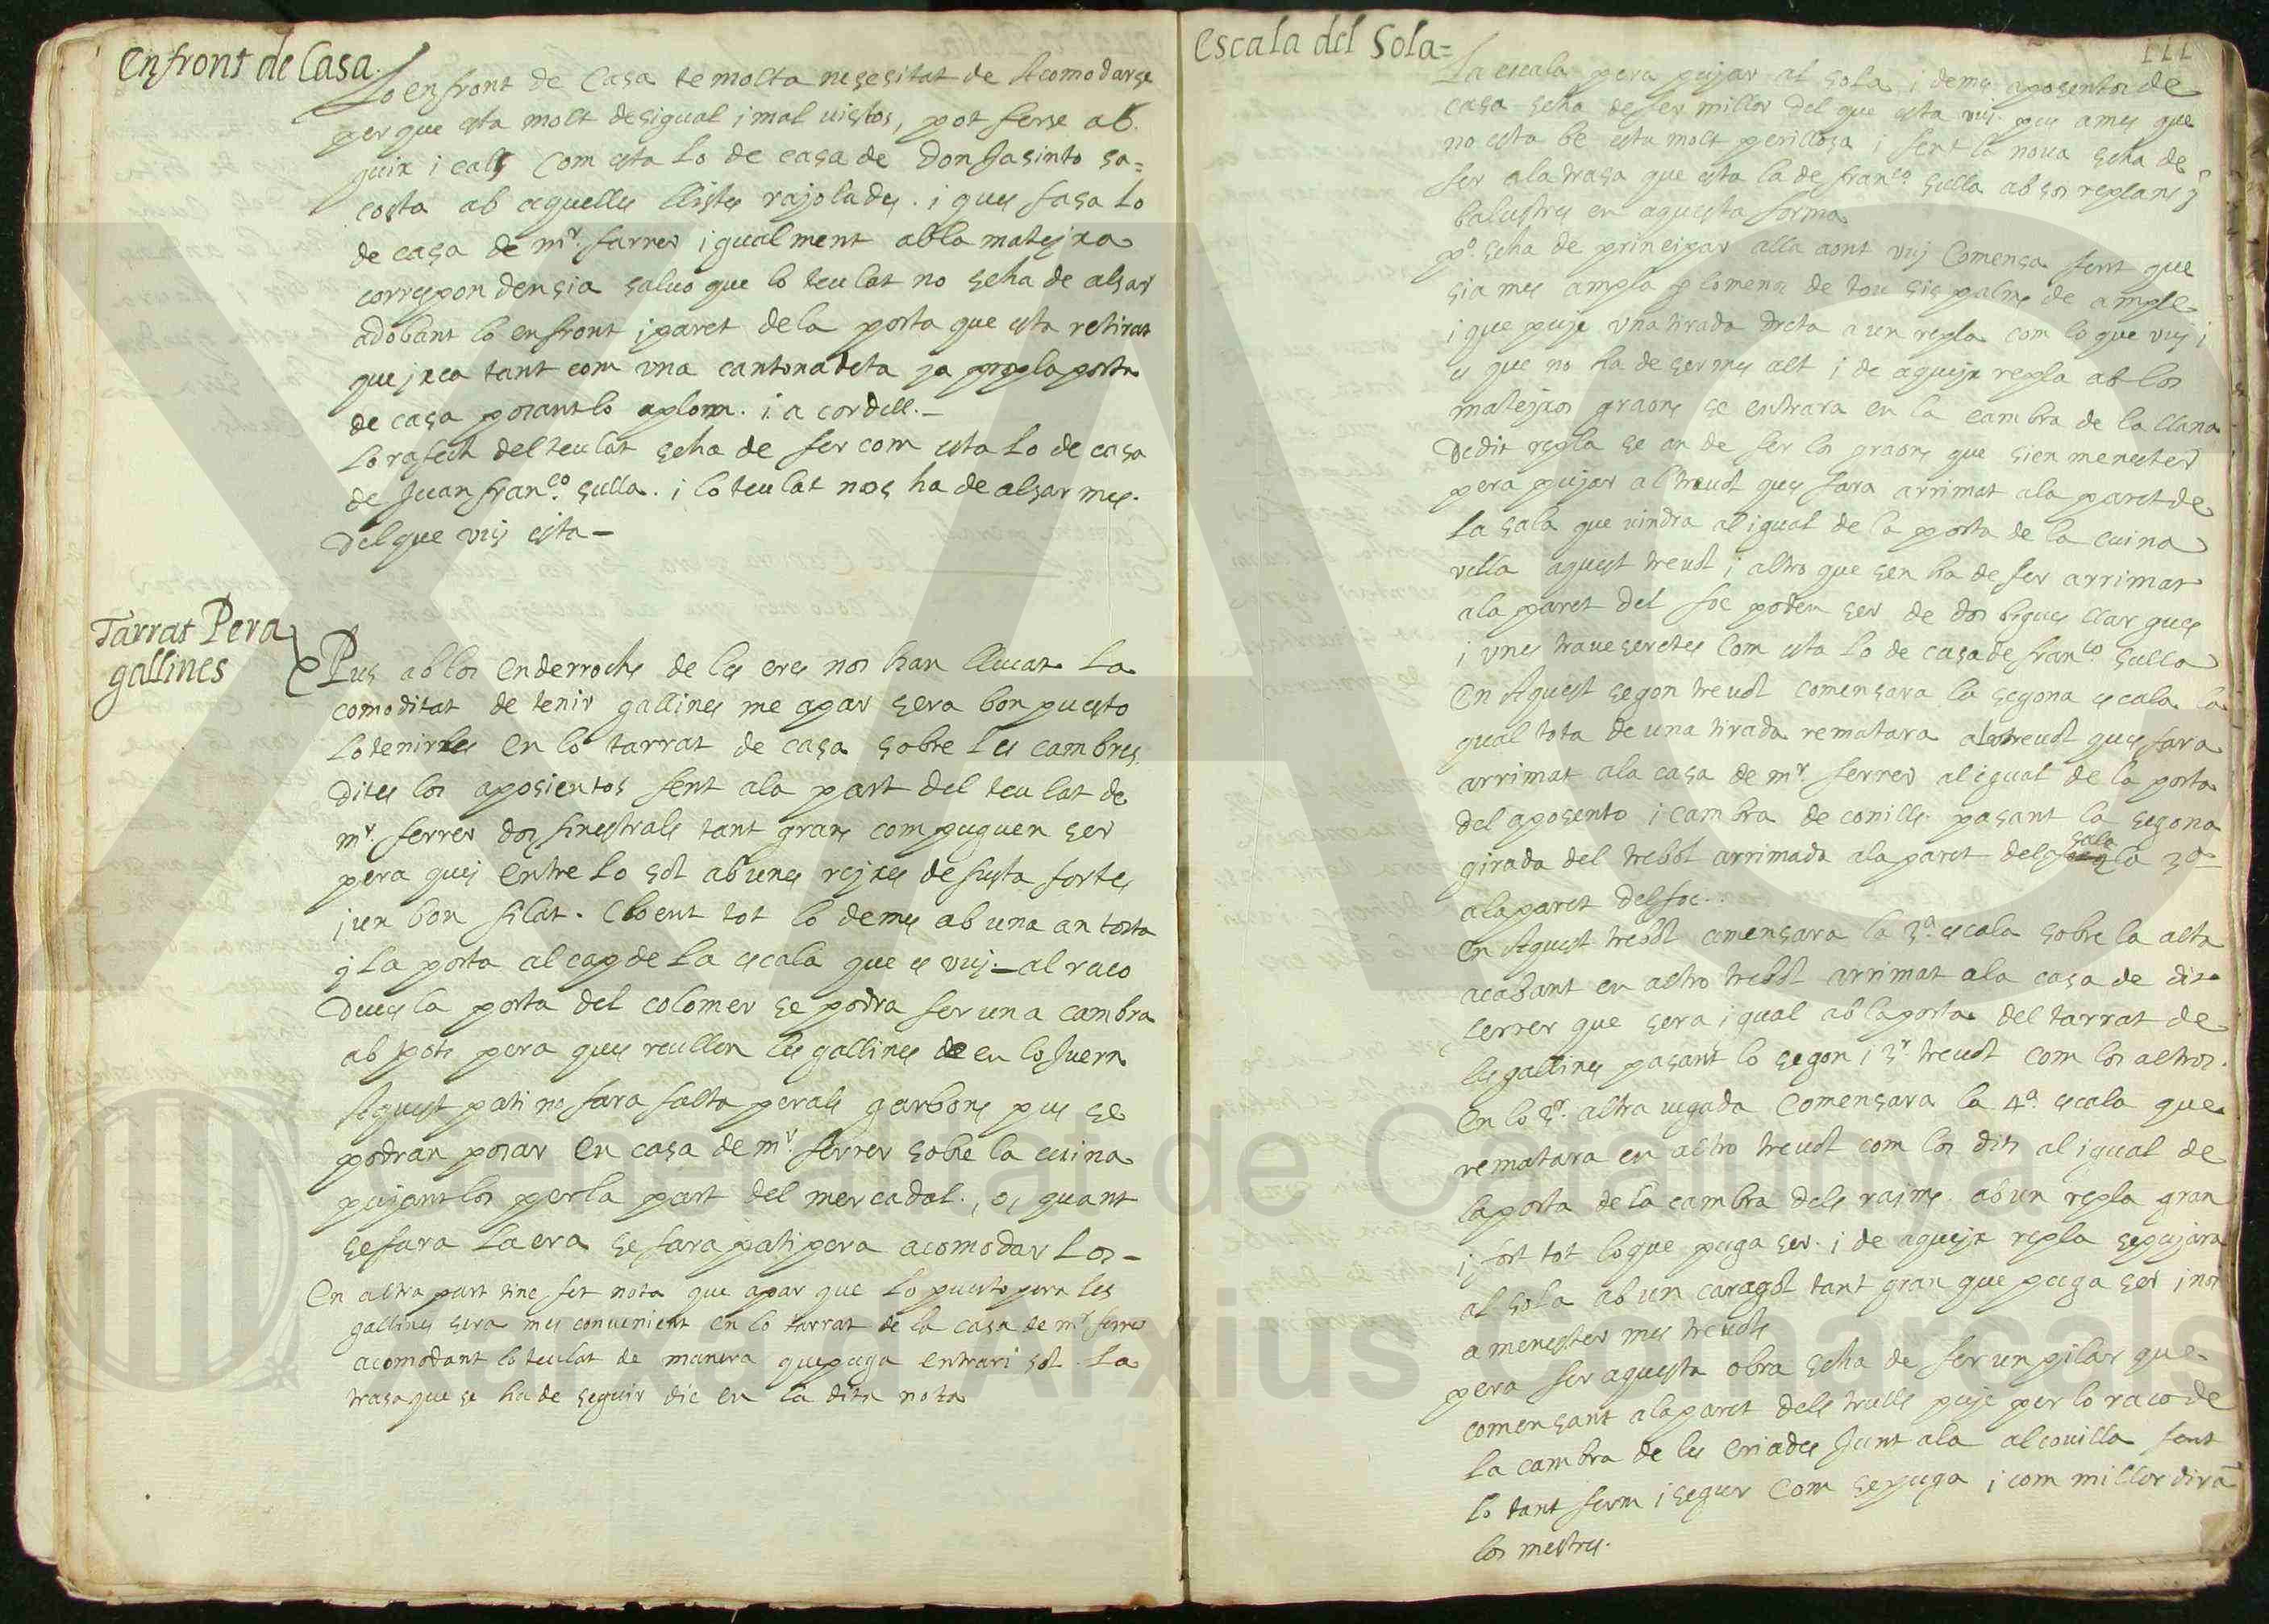 Enfront de Casa.
Lo enfront de Casa te molta nesesitat de Acomodarse
per que esta molt desigual i mal vistos, pot ferse ab
guix i cals Com esta Lo de casa de Don Jasinto sa=
costa ab aquelles llistes rajolades. i ques fasa Lo
de casa de mr. farrer igualment abla mateixa
correspondensia salvo que lo teulat no seha de alsar
adobant lo enfront i paret dela porta que esta retirat
que ixca tant com una cantonadeta ja prop la porta
de casa posantlo aplom. i a cordell.—
Lo rafech del teulat seha de fer com esta Lo de casa
de Juan franco. sulla. i lo teulat nos ha de alsar mes.
Del que vuy esta—
Tarrat Pera
gallines
Pus ab los enderrochs de les eres nos han llevat La
comoditat de tenir gallines me apar sera bon puesto
Lo tenirles en lo tarrat de casa sobre les cambres.
Dites los aposientos fent ala part del teulat de
mr. ferrer dos finestrals tant grans com puguen ser
pera quey entre Lo sol ab unes reixes de fusta fortes
i un bon filat. Cloent tot lo demes ab una antosta
y La porta al cap de La escala que es vuy.— al raco
Deves la porta del colomer se podra fer una cambra
ab pots pera ques recullen les gallines en lo Ivern
Aquest pati no fara falta perals garbons pus se
podran posar en casa de mr. ferrer sobre la cuina
pujantlos perla part del mercadal., o, quant
se fara La era se fara pati pera acomodarlos—
En altra part tinc fet nota que apar que Lo puesto pera les
gallines sera mes convenient en lo tarrat de la casa de mr ferrer
acomodant lo teulat de manera que puga entrari sol. La
trasa que se ha de seguir dic en la dita nota
Escala del Sola=
111
La escala pera pujar al sola i demes aposentos de
casa seha de fer millor del que esta vuy. pus ames que
no esta be esta molt perillosa i fent la nova seha de
fer ala trasa que esta la de franco. sulla ab sos replans y
balustres en aquesta forma
po. seha de prinsipar alla aont vuy Comensa fent que
sia mes ampla plomenis de tou sis palms de ample
i que puje una tirada dreta a un repla com lo que vuy i
es que no ha de ser mes alt i de aqueix repla ab los
mateixos graons se entrara en la cambra de la llana
Dedit repla se an de fer los graons que sien menester
pera pujar al treudol ques fara arrimat ala paret de
La sala que vindra al igual de la porta de la cuina
vella aquest treudol i altro que sen ha de fer arrimat
ala paret del foc poden ser de dos bigues llargues
i unes traveseretes Com esta Lo de casa de franco sulla
En Aquest segon treudol comensara la segona escala la
qual tota de una tirada rematara altreudol ques fara
arrimat ala casa de mr. ferrer al igual de la porta
del aposento i cambra de conills. pasant la segona
girada del trebol arrimada ala paret dela sala la 3a
ala paret del foc.
En Aquest trebol comensara la 3a. escala sobre la alta
acabant en altro trebol arrimat ala casa de dit
ferrer que sera igual ab la porta del tarrat de
les gallines pasant lo segon i 3r. treudol com los altros.
En lo 3r. altra vegada Comensara la 4a. escala que
rematara en altro treudol com los dits al igual de
la porta de la cambra dels raims. ab un repla gran
i fort tot lo que puga ser. i de aqueix repla se pujara
al sola ab un caragol tant gran que puga ser i nos
a menester mes treudols
pera fer aquesta obra seha de fer un pilar que
comensant ala paret dels trulls puje per lo raco de
La cambra de les criades Junt ala alcovilla fent
lo tant ferm i segur Com se puga i com millor diran
los mestres.